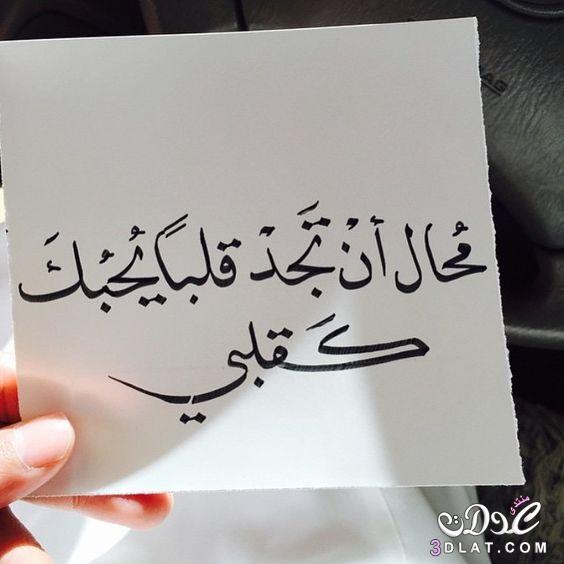 مُحال أنْ تَجدْ قلباً يُحبُكَ
كَقلبي
منتدى
عدلات
3DLAT.COM